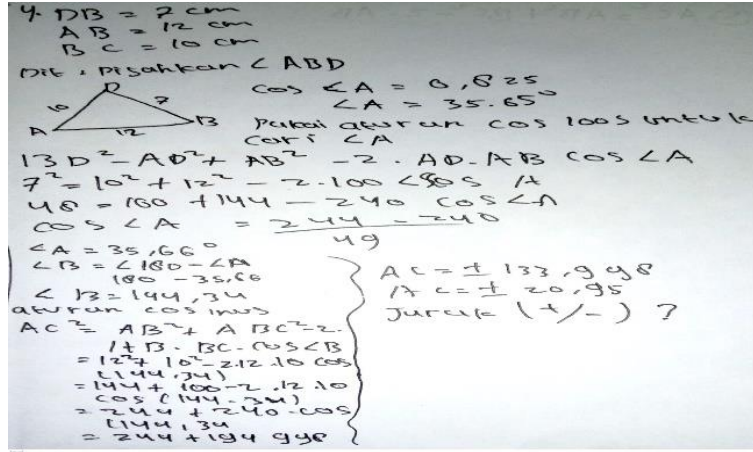 4. DB = 7 cm
AB = 12 cm
BC = 10 cm
Dit : Pisahkan ∠ ABD
cos ∠A = 0,825
∠A = 35.65°
D
10
7
A
12
B
Pakai aturan cos untuk
cari ∠A
BD² - AD² + AB² - 2 . AD . AB cos ∠A
7² = 10² + 12² - 2.100 cos A
48 = 100 + 144 - 240 cos ∠A
cos ∠A = 244 - 240
49
∠A = 35,66°
∠B = ∠180 - ∠A
180 - 35,66
∠B = 144,34
aturan cosinus
AC² = AB² + A BC² - 2.
AB . BC . cos ∠B
= 12² + 10² - 2.12 .10 cos
(144,34)
= 144 + 100 - 2 .12 .10
cos (144.34)
= 244 + 240 . cos
(144,34
= 244 + 194 998
AC = ± 133,998
AC = ± 20,95
(+/-) ?